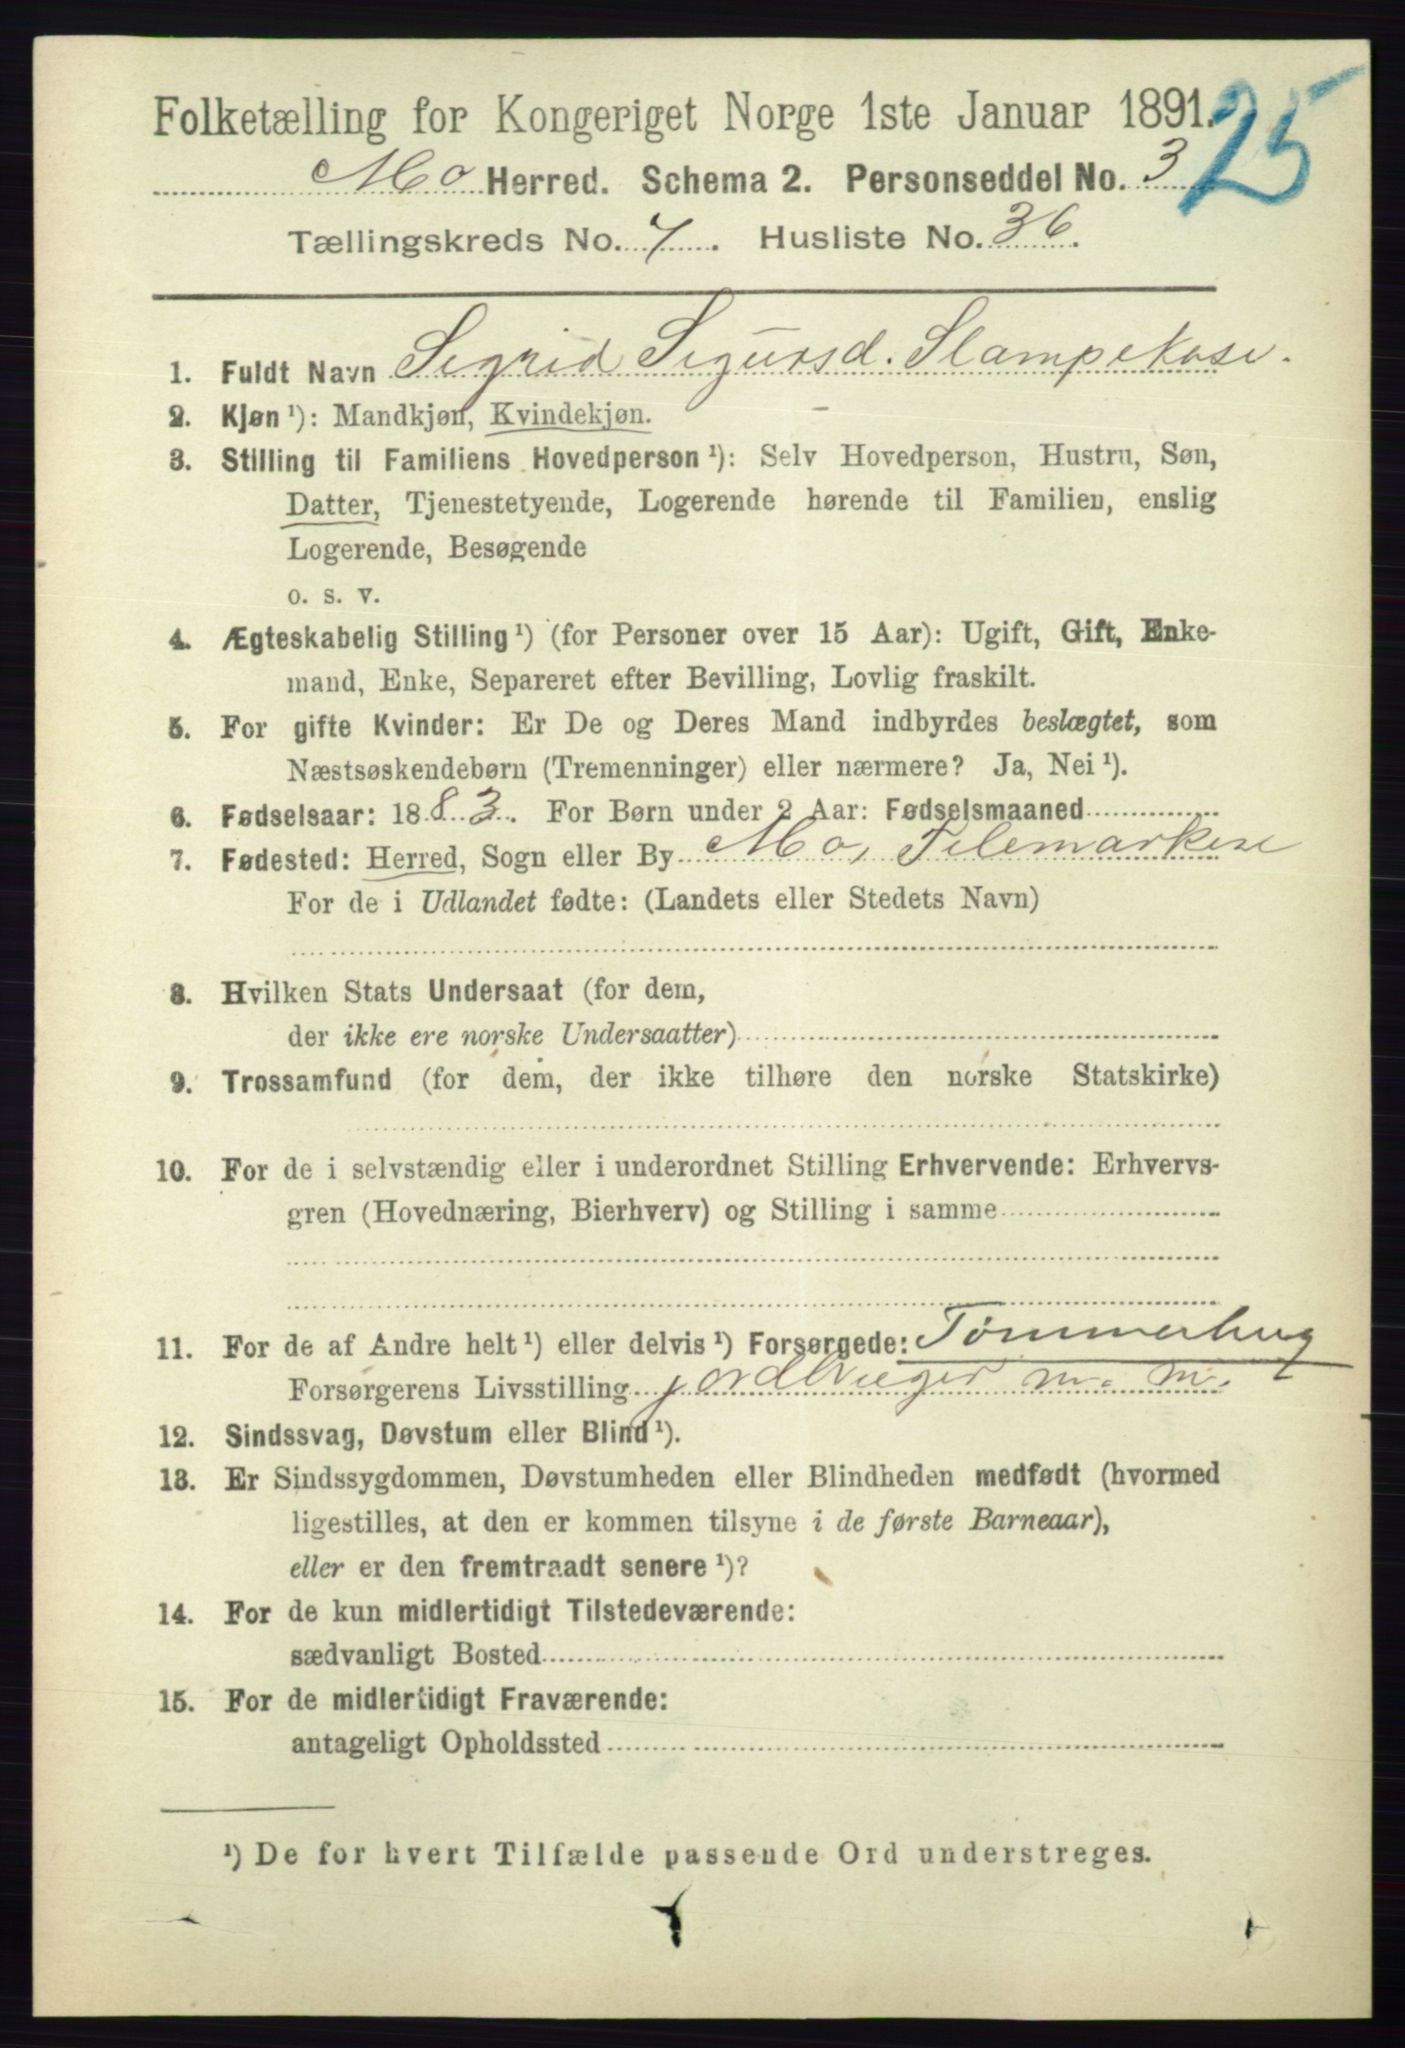 Folketælling for Kongeriget Norge 1ste Januar 1891. 25
Mo Herred. Schema 2. Personseddel No. 3
Tællingskreds No. 7. Husliste No. 36.
1. Fuldt Navn Sigrid Sigursd. Slampekose.
2. Kjøn ¹): Mandkjøn, Kvindekjøn.
3. Stilling til Familiens Hovedperson ¹): Selv Hovedperson, Hustru, Søn,
Datter, Tjenestetyende, Logerende hørende til Familien, enslig
Logerende, Besøgende
o. s. v.
4. Ægteskabelig Stilling ¹) (for Personer over 15 Aar): Ugift, Gift, Enke-
mand, Enke, Separeret efter Bevilling, Lovlig fraskilt.
5. For gifte Kvinder: Er De og Deres Mand indbyrdes beslægtet, som
Næstsøskendebørn (Tremenninger) eller nærmere? Ja, Nei ¹).
6. Fødselsaar: 1883. For Børn under 2 Aar: Fødselsmaaned
7. Fødested: Herred, Sogn eller By Mo, Telemarkene
For de i Udlandet fødte: (Landets eller Stedets Navn)
8. Hvilken Stats Undersaat (for dem,
der ikke ere norske Undersaatter)
9. Trossamfund (for dem, der ikke tilhøre den norske Statskirke)
10. For de i selvstændig eller i underordnet Stilling Erhvervende: Erhvervs-
gren (Hovednæring, Bierhverv) og Stilling i samme
11. For de af Andre helt ¹) eller delvis ¹) Forsørgede: Tømmerhug
Forsørgerens Livsstilling jordbruger m. m.
12. Sindssvag, Døvstum eller Blind ¹).
13. Er Sindssygdommen, Døvstumheden eller Blindheden medfødt (hvormed
ligestilles, at den er kommen tilsyne i de første Barneaar),
eller er den fremtraadt senere ¹)?
14. For de kun midlertidigt Tilstedeværende:
sædvanligt Bosted
15. For de midlertidigt Fraværende:
antageligt Opholdssted
¹) De for hvert Tilfælde passende Ord understreges.